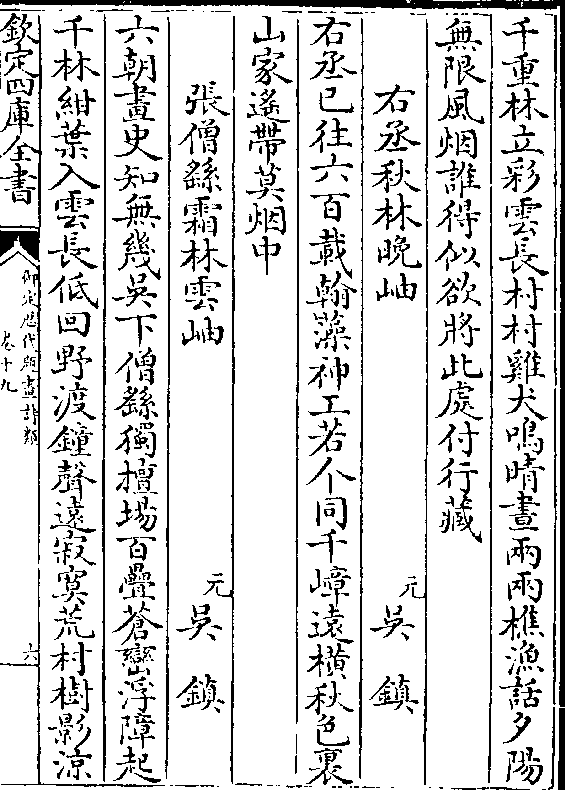 千重林立彩雲長村村雞犬鳴晴晝兩兩樵漁話夕陽
無限風烟誰得似欲將此處付行藏
右丞秋林晚岫
元吳鎮
右丞已往六百載翰藻神工若個同千嶂遠橫秋色裏
山家遙帶莫烟中
張僧繇霜林雲岫
元吳鎮
六朝畫史知無幾吳下僧繇獨擅場百疊蒼巒浮障起
千林紺葉入雲長低回野渡鐘聲遠寂寞荒村樹影涼
欽定四庫全書
御定歷代題畫詩類
卷十九
六